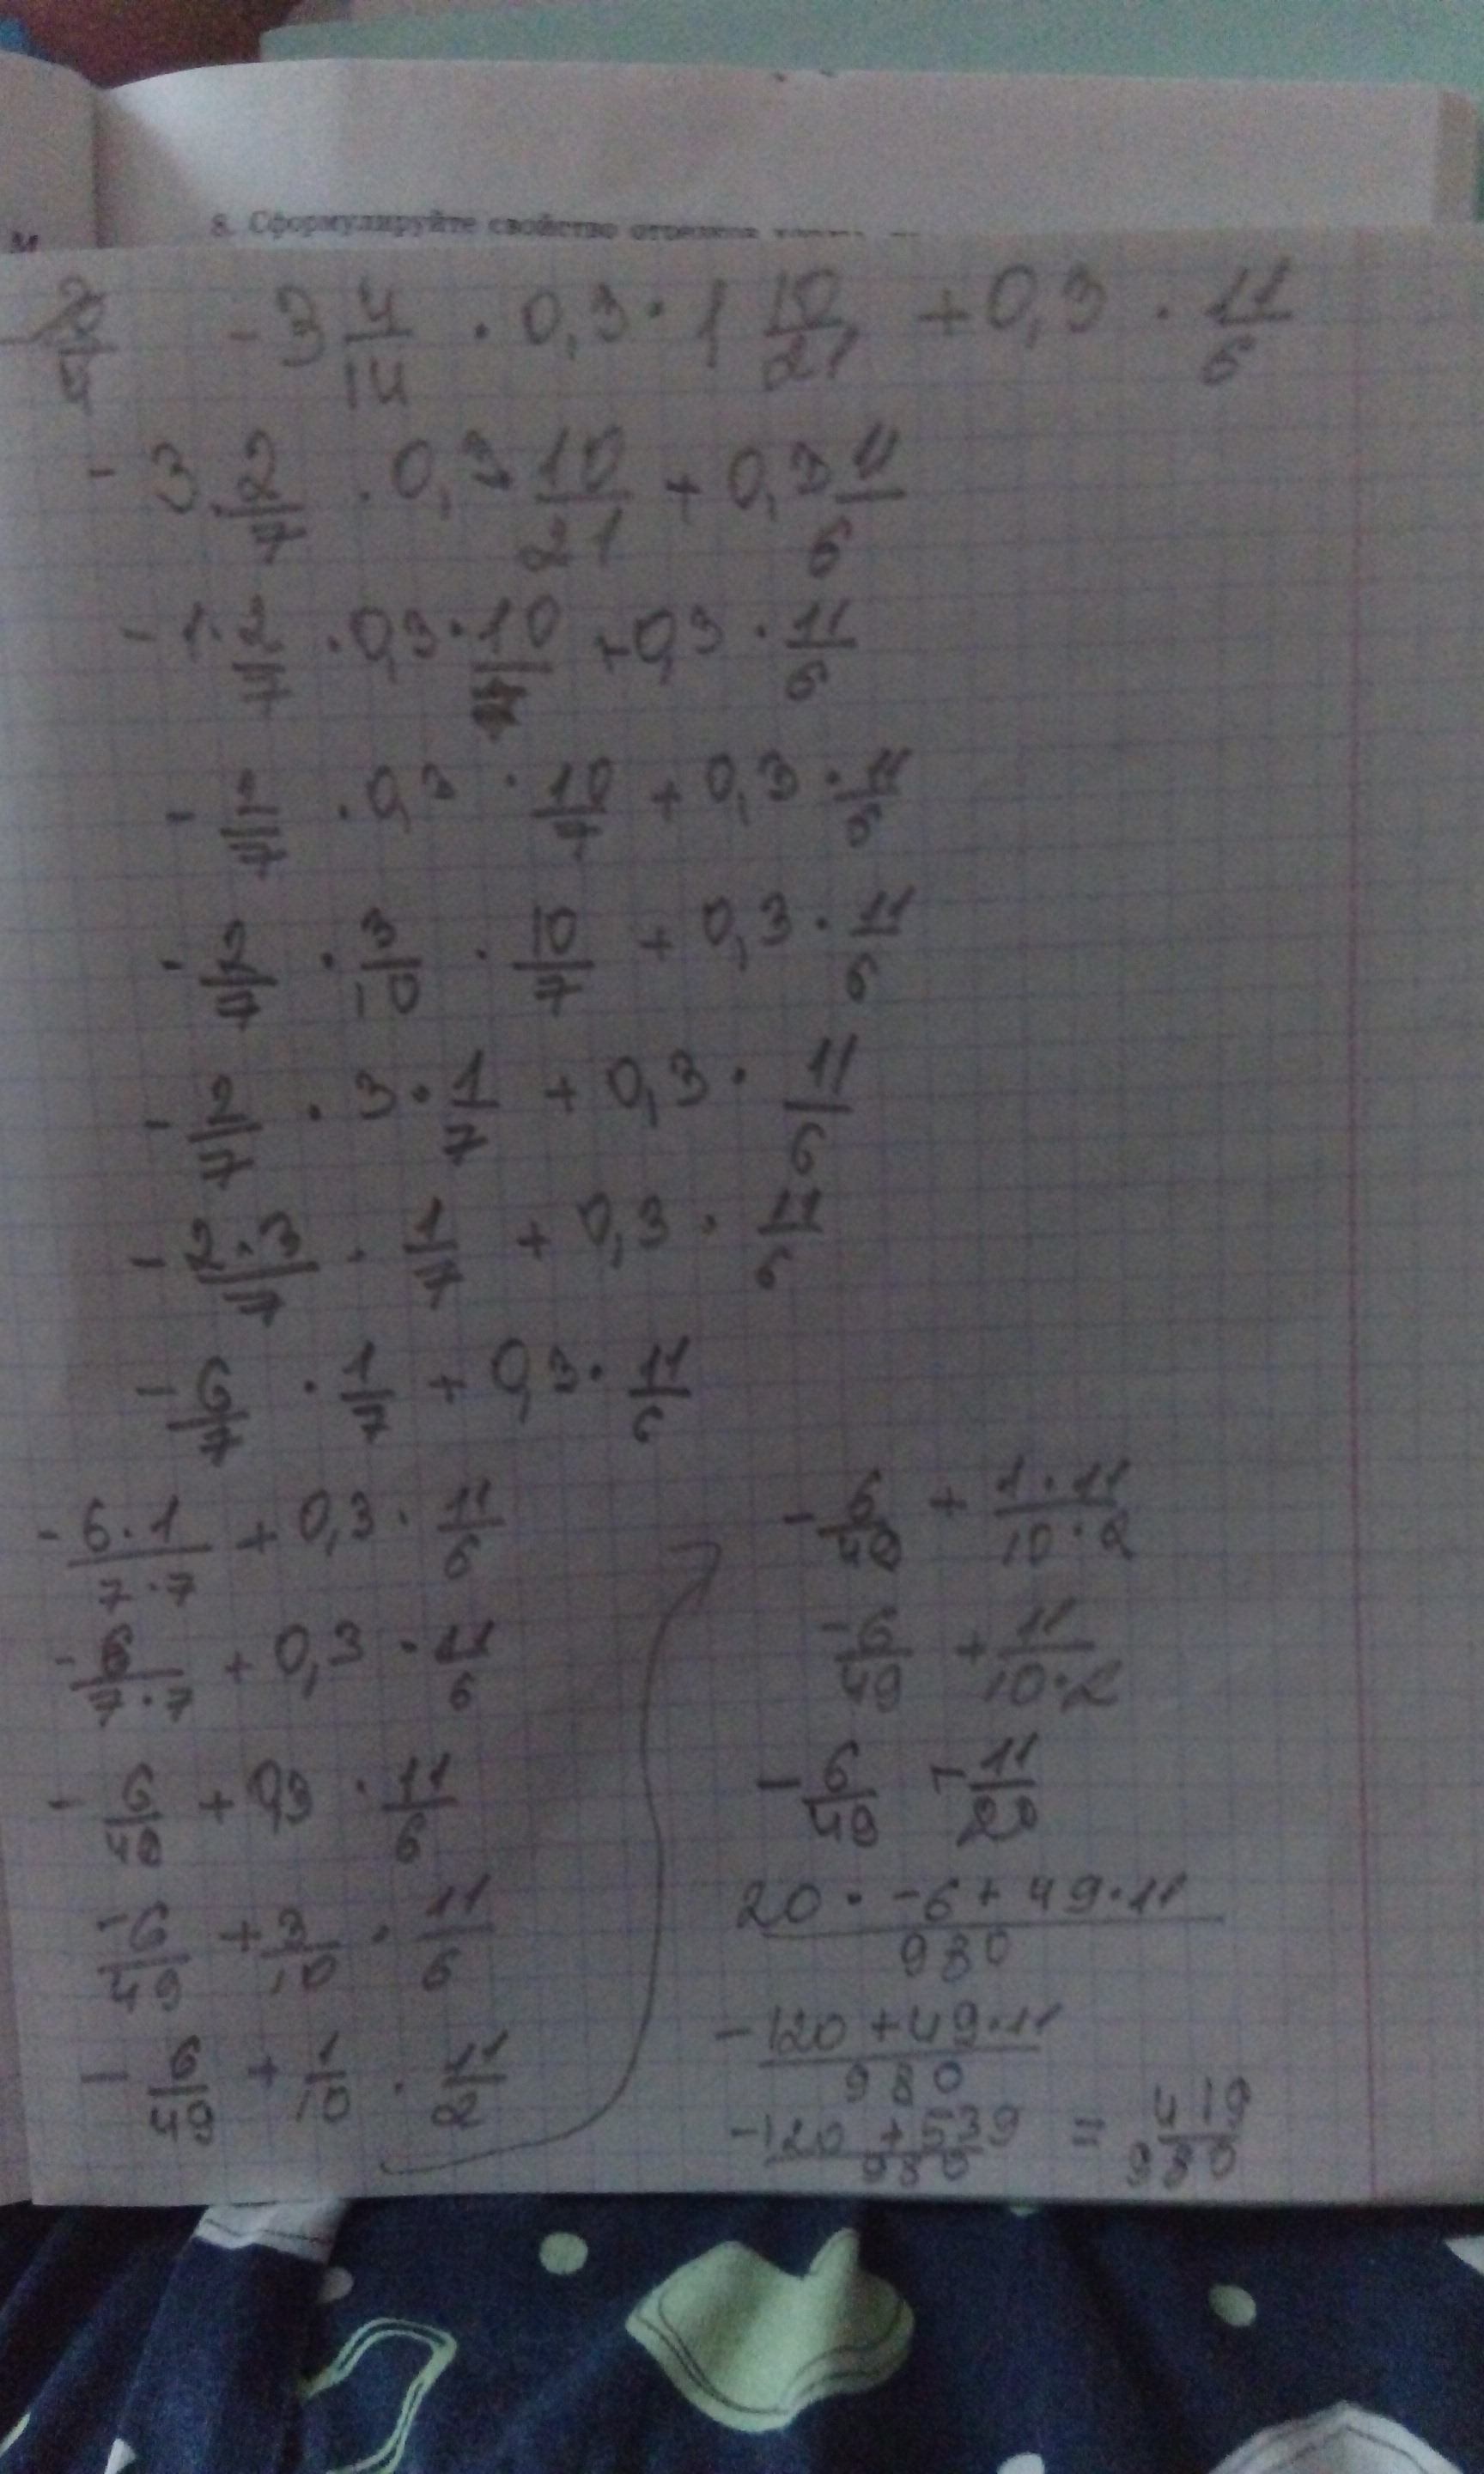 м
8. Сформулируйте свойство отрезков
-3 4/14 · 0,3 · 1 10/21 + 0,3 · 11/6
- 3 · 2/7 · 0,3 · 10/21 + 0,3 11/6
- 1 · 2/7 · 0,3 · 10/7 + 0,3 · 11/6
- 2/7 · 0,3 · 10/7 + 0,3 · 11/6
- 2/7 · 3/10 · 10/7 + 0,3 · 11/6
- 2/7 · 3 · 1/7 + 0,3 · 11/6
- 2·3/7 · 1/7 + 0,3 · 11/6
- 6/7 · 1/7 + 0,3 · 11/6
- 6·1/7·7 + 0,3 · 11/6
- 6/7·7 + 0,3 · 11/6
- 6/49 + 0,3 · 11/6
-6/49 + 3/10 · 11/6
- 6/49 + 1/10 · 11/2
- 6/49 + 1·11/10·2
-6/49 + 11/10·2
- 6/49 + 11/20
20 · -6 + 49·11/980
-120 + 49·11/980
-120 + 539/980 = 419/980